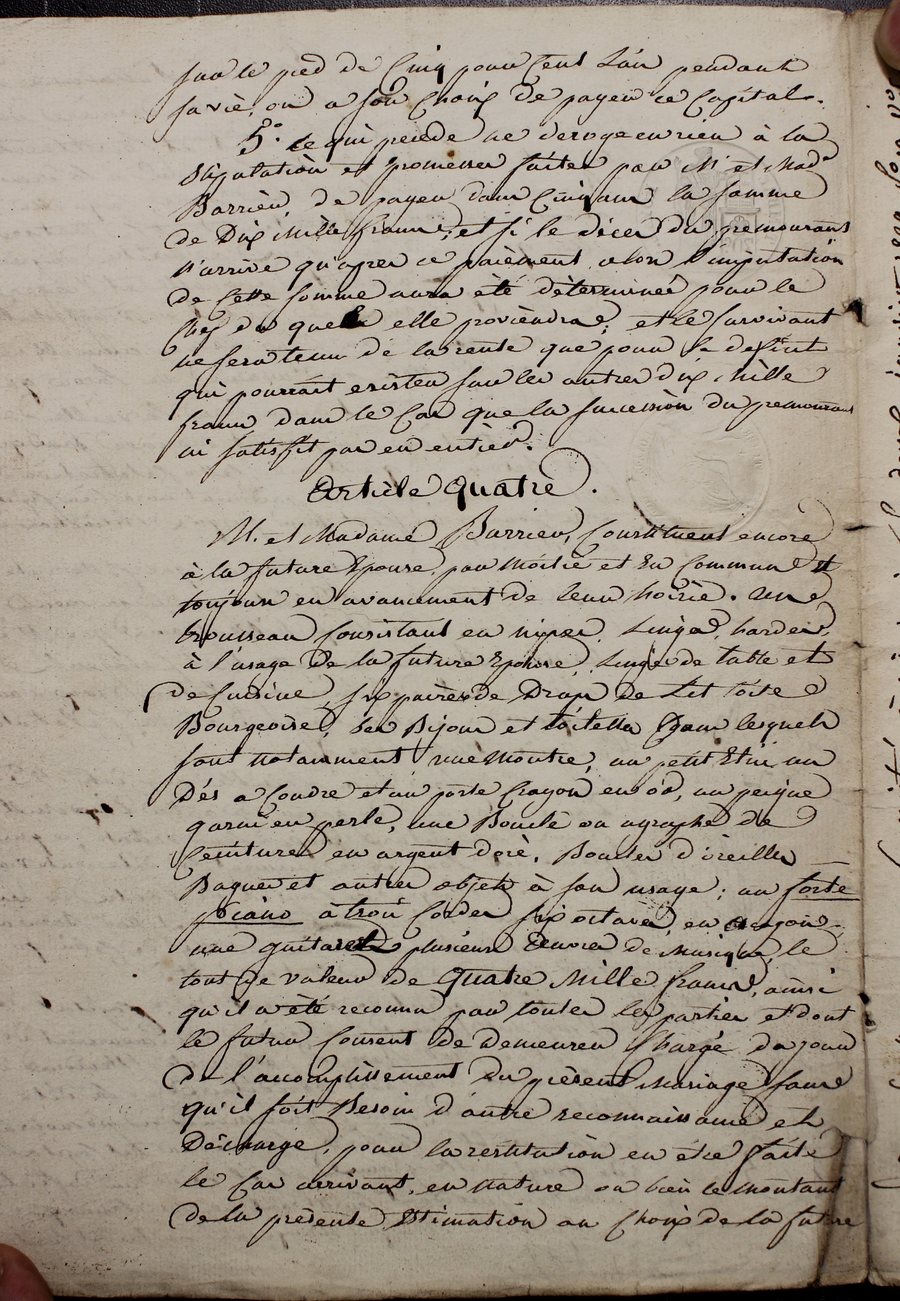 sur le pied de Cinq pour Cent L'an pendant
sa vie, ou a son Choix de payer ce Capital.
5.° Ce qui precede ne deroge en rien à la
Stipulation et promesse faites par M. et Mad.e
Barrieu de payer dans Cinq ans la somme
de Dix Mille francs, et si le décès du premourant
n'arrive qu'apres ce paiement, alors l'imputation
de Cette somme aura été déterminée pour le
Chef du quel elle proviendra, et le survivant
ne sera tenu de la rente que pour le deficit
qui pourrait exister sur les autres dix Mille
francs dans le Cas que la succession du premourant
n'i satisfit pas en entier.
Article Quatre.
M. et Madame Barrieu, Constituent encore
à la future Epouse, par Moitié et En Commun et
toujours en avancement de leur hoirie. un
trousseau Consistant en nipes, Linges, hardes,
à l'usage de la future Epouse, Linge de table et
de Cuisine, six paires de Draps de Lit toile
Bourgeoise, ses Bijoux et toilette dans lesquels
sont notamment une Montre, un petit Etui, un
Dés a Coudre et un porte Crayon en or, un peigne
garni en perle, une Boucle ou agraphe de
Ceinture en argent doré, Boucles d'oreilles
Bagues et autres objets à son usage; un forte
piano à trois Cordes six octaves, en acajou,
une guitare plusieurs Œuvres de Musique, le
tout de valeur de Quatre Mille francs, ainsi
qu'il a été reconnu par toutes les parties et dont
le futur Consent de demeurer Chargé du jour
de l'accomplissement du présent Mariage sans
qu'il soit Besoin d'autre reconnaissance et
Décharge, pour la restitution en être faite
le Cas arrivant, en nature ou bien le Montant
de la presente Estimation au Choix de la future